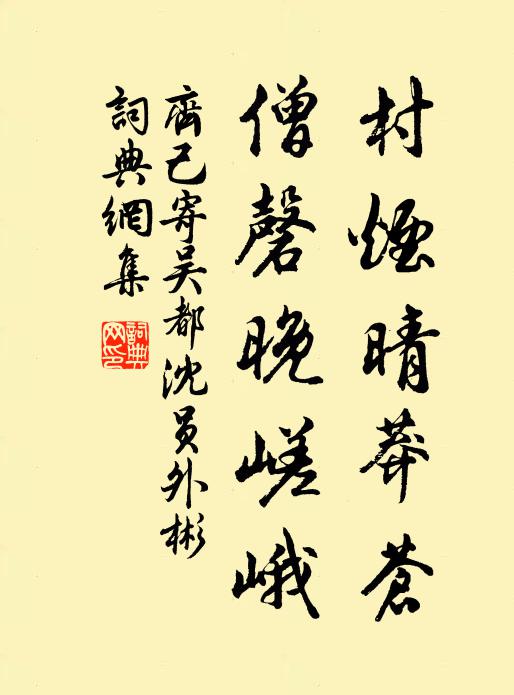 村煙晴莽蒼
僧磬晚嵯峨
齊己寄吳都沈員外彬
詞典網集
詞典网印